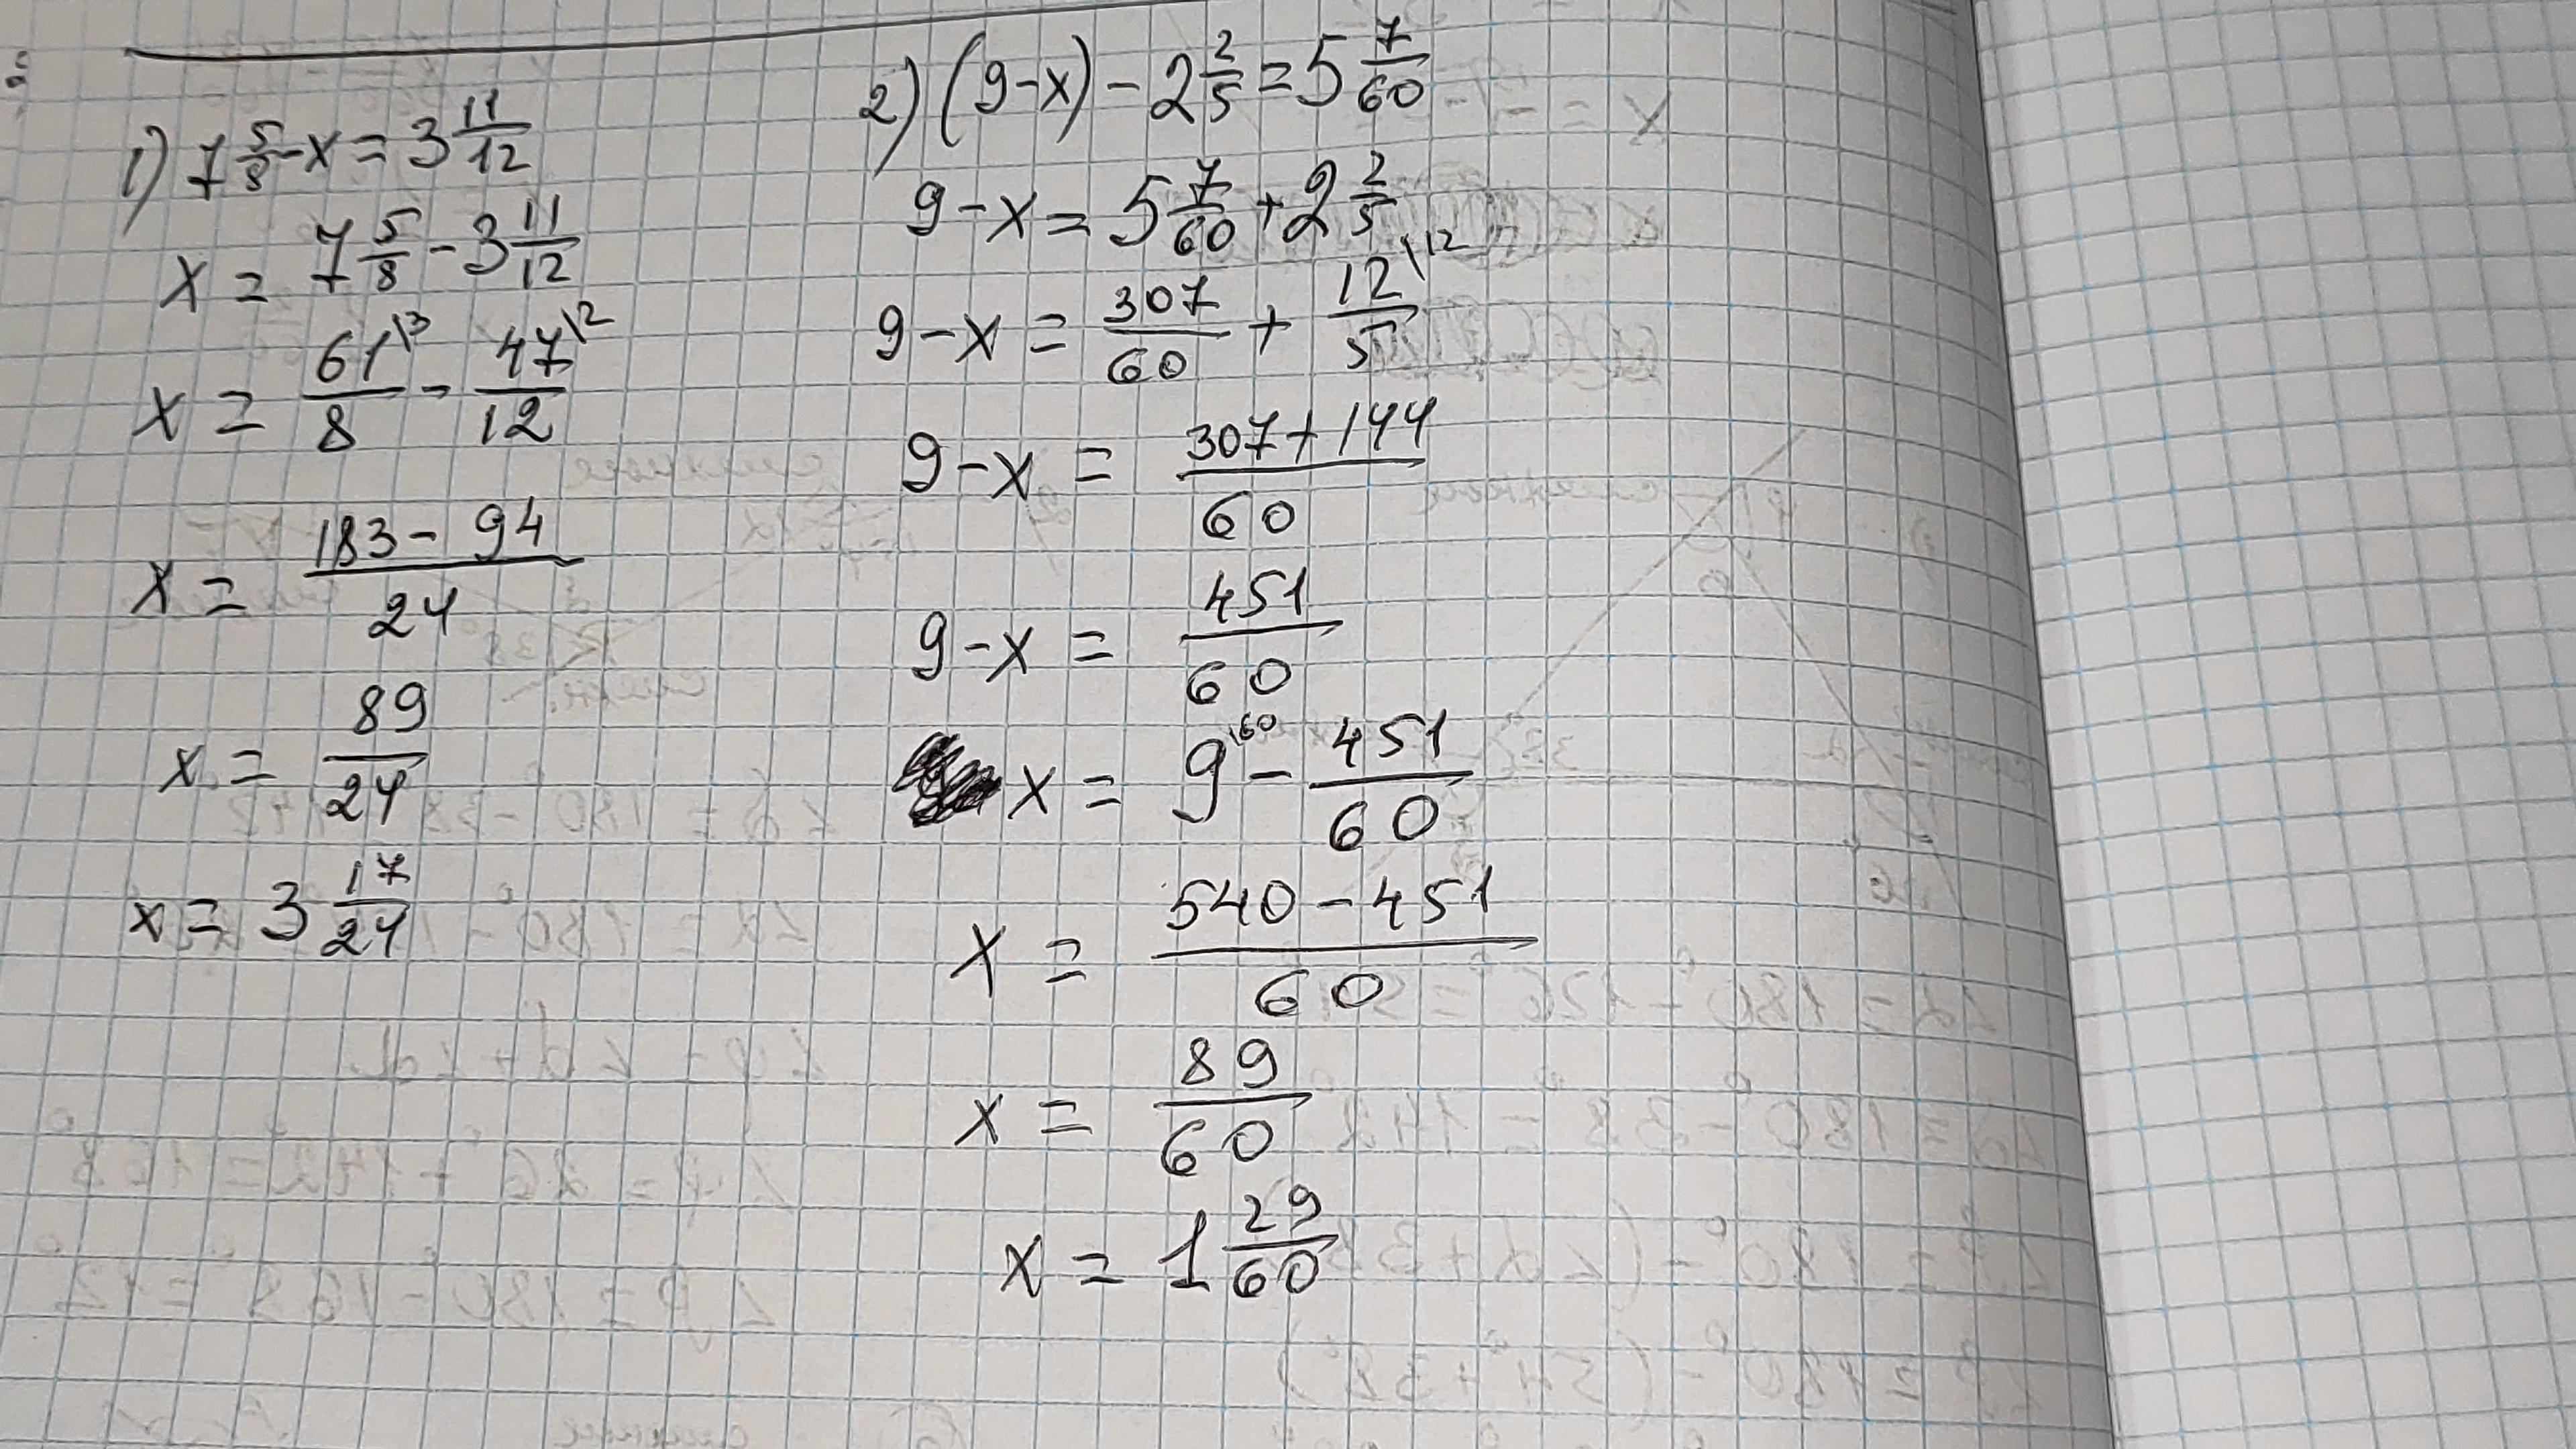 1) 7 5/8 - x = 3 11/12
x = 7 5/8 - 3 11/12
x = 61\3/8 - 47\2/12
x = 183 - 94/24
x = 89/24
x = 3 17/24
2) (9 - x) - 2 2/5 = 5 7/60
9 - x = 5 7/60 + 2 2/5
9 - x = 307/60 + 12\12/5
9 - x = 307 + 144/60
9 - x = 451/60
x = 9\60 - 451/60
x = 540 - 451/60
x = 89/60
x = 1 29/60